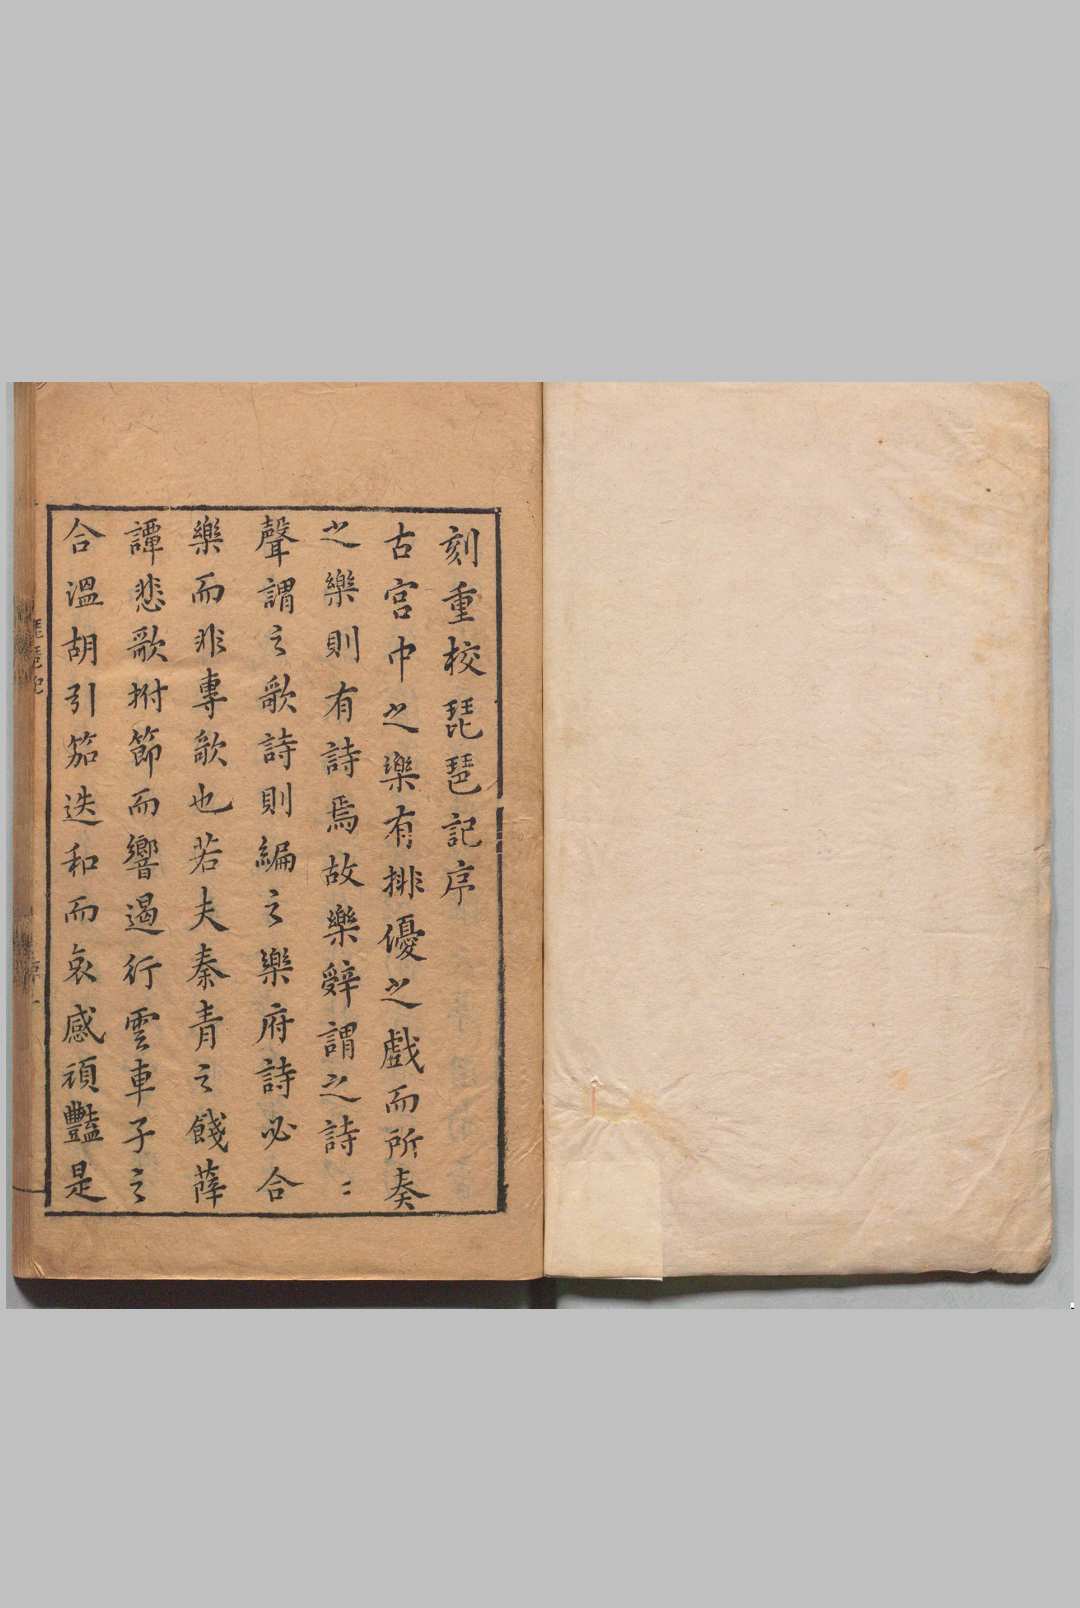 刻重校琵琶記序
古宮中之樂有排優之戲而所奏
之樂則有詩焉故樂辭謂之詩〻
聲謂之歌詩則編之樂府詩必合
樂而非專歌也若夫秦青之餞薛
譚悲歌拊節而響遏行雲車子之
合溫胡引笳迭和而哀感頑豔是
琵琶記
序 一